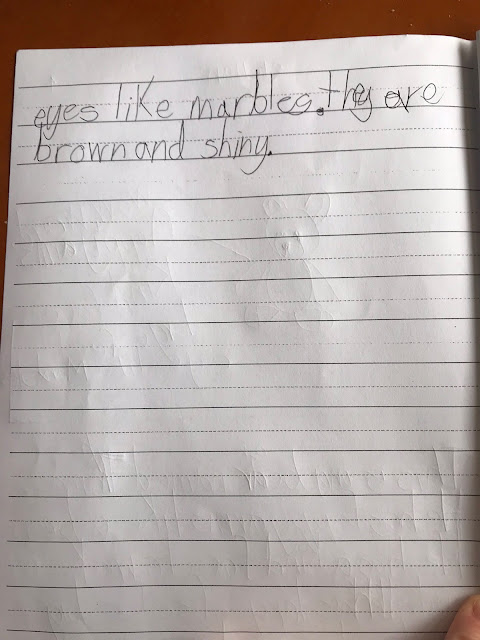 eyes like marbles. they are
brown and shiny.